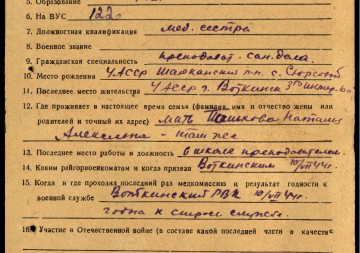 5. Образование
6. На ВУС 122
7. Должностная квалификация мед. сестра
8. Военное звание
9. Гражданская специальность преподават. сан. дела
10. Место рождения УАССР Шарканский р-н. с.
11. Последнее место жительства УАССР г. Воткинск
12. Где проживает в настоящее время семья (фамилия, имя и отчество жены или
родителей и точный их адрес) мать
Алексеевна - там же
13. Последнее место работы и должность в школе преподавателем
14. Каким райгорвоенкоматом и когда призван Воткинским 10/VII 44 г.
15. Когда и где проходил последний раз медкомиссию и результат годности к
военной службе Воткинский РВК 10/VII 44 г.
годна к строев. службе
16. Участие в Отечественной войне (в составе какой последней части в качеств